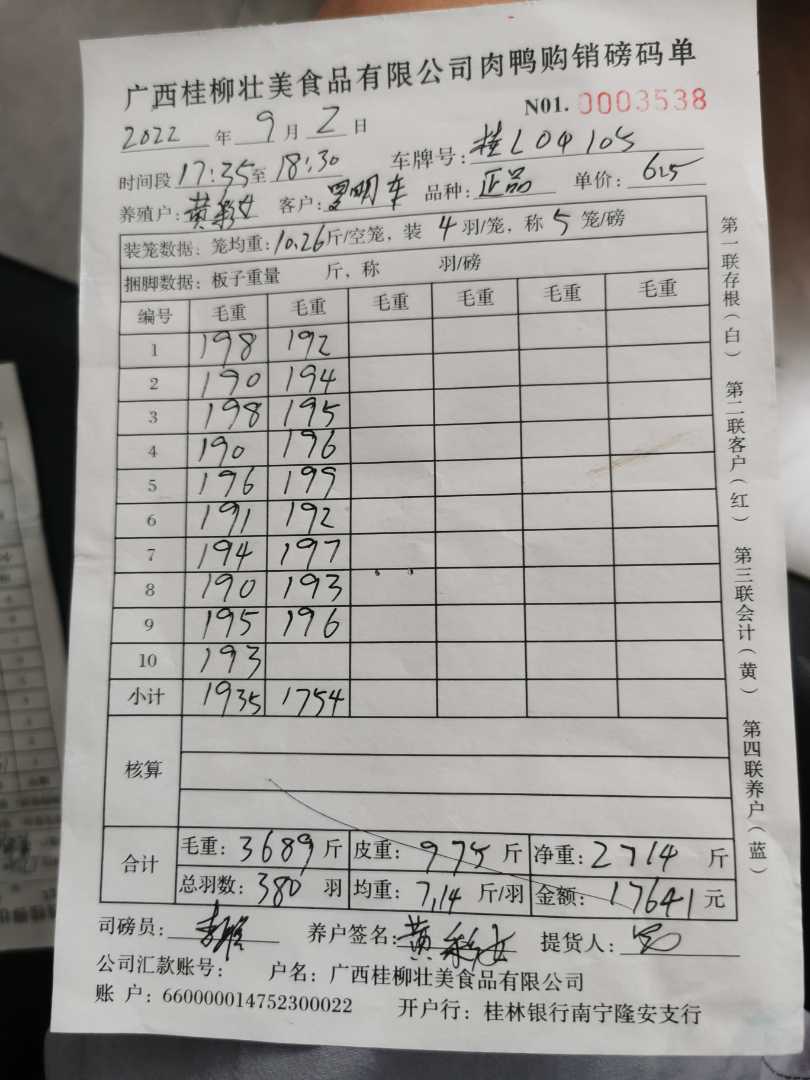 广西桂柳壮美食品有限公司肉鸭购销磅码单
2022 年 9 月 2 日 N01. 0003538
时间段 17:35 至 18:30 车牌号: 桂L04105
养殖户: 黄彩女 客户: 罗明车 品种: 正品 单价: 6.5
装笼数据: 笼均重: 10.26 斤/空笼, 装 4 羽/笼, 称 5 笼/磅
捆脚数据: 板子重量 斤, 称 羽/磅
编号 毛重 毛重 毛重 毛重 毛重 毛重
1 198 192
2 190 194
3 198 195
4 190 196
5 196 199
6 191 192
7 194 197
8 190 193
9 195 196
10 193
小计 1935 1754
核算
合计 毛重: 3689 斤 皮重: 975 斤 净重: 2714 斤
总羽数: 380 羽 均重: 7.14 斤/羽 金额: 17641 元
司磅员: 养户签名: 黄彩女 提货人:
公司汇款账号: 户名: 广西桂柳壮美食品有限公司
账 户: 660000014752300022 开户行: 桂林银行南宁隆安支行
第一联存根(白) 第二联客户(红) 第三联会计(黄) 第四联养户(蓝)